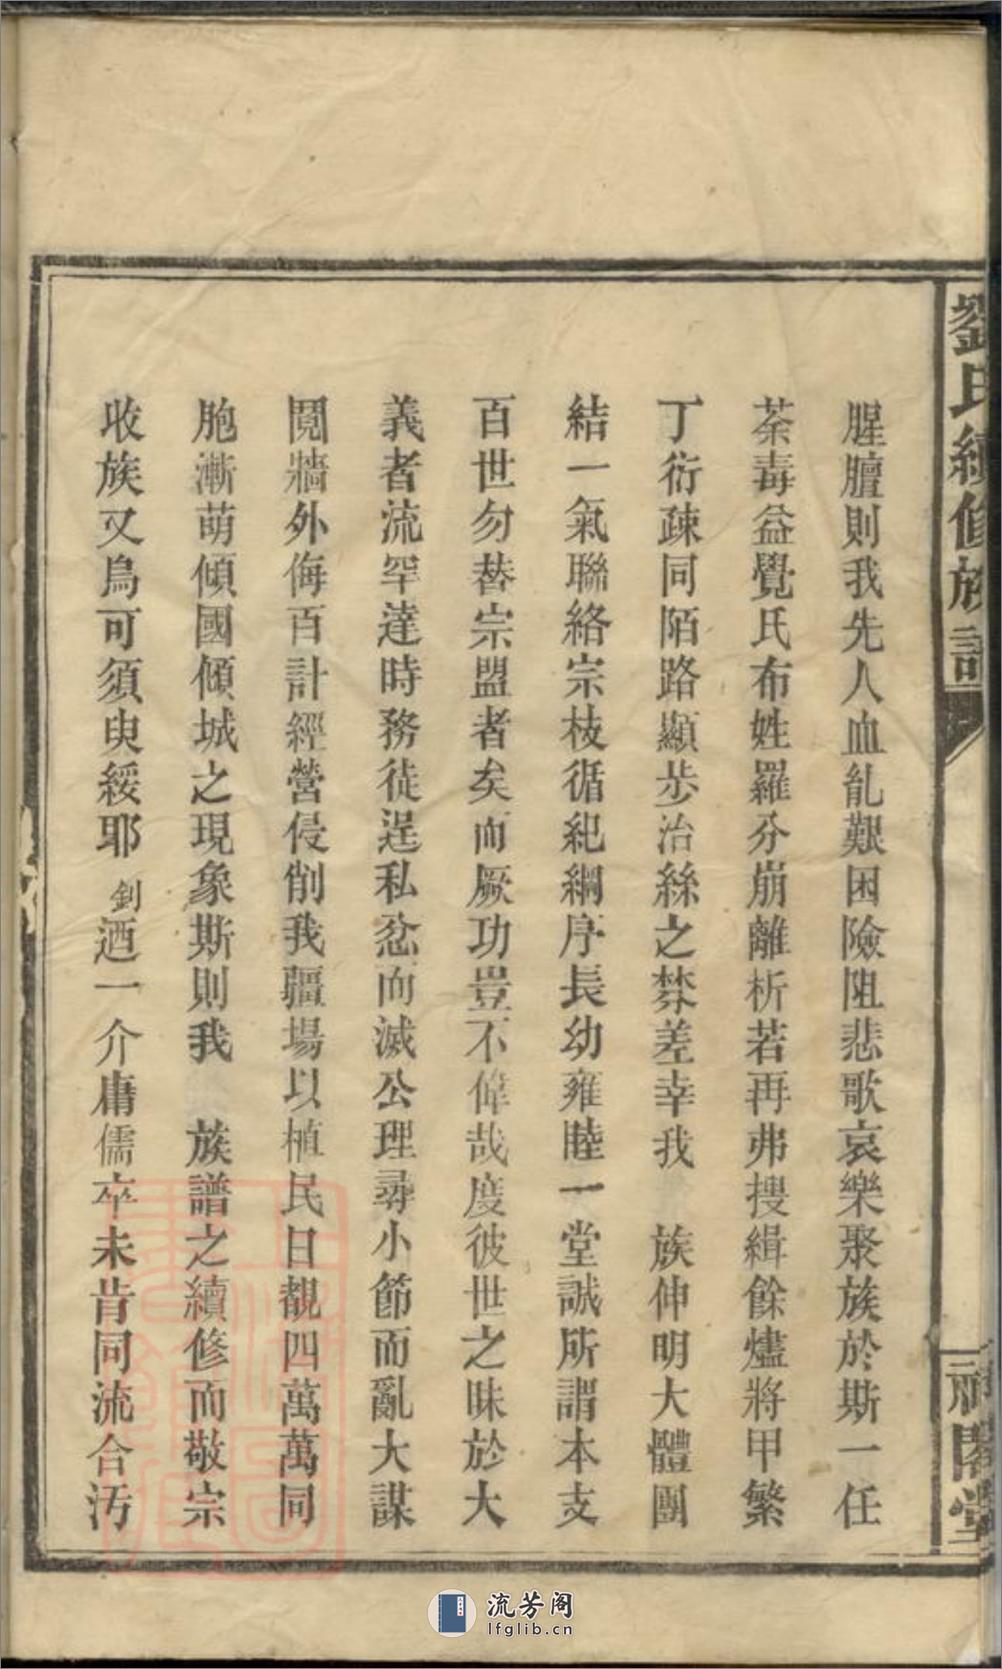 劉氏續修族譜
腥膻則我先人血亂艱困險阻悲歌哀樂聚族於斯一任
荼毒益覺氏布姓羅分崩離析若再弗搜緝餘燼將甲繁
丁衍疎同陌路顯步治絲之棼差幸我　族伸明大體團
結一氣聯絡宗枝循紀綱序長幼雍睦一堂誠所謂本支
百世勿替宗盟者矣而厥功豈不偉哉度彼世之昧於大
義者流罕達時務徒逞私忿而滅公理尋小節而亂大謀
鬩牆外侮百計經營侵削我疆場以植民日覩四萬萬同
胞漸萌傾國傾城之現象斯則我　族譜之續修而敬宗
收族又烏可須臾綏耶 釗 迺一介庸儒卒未肯同流合汚
閣堂
流芳阁
lfglib.cn